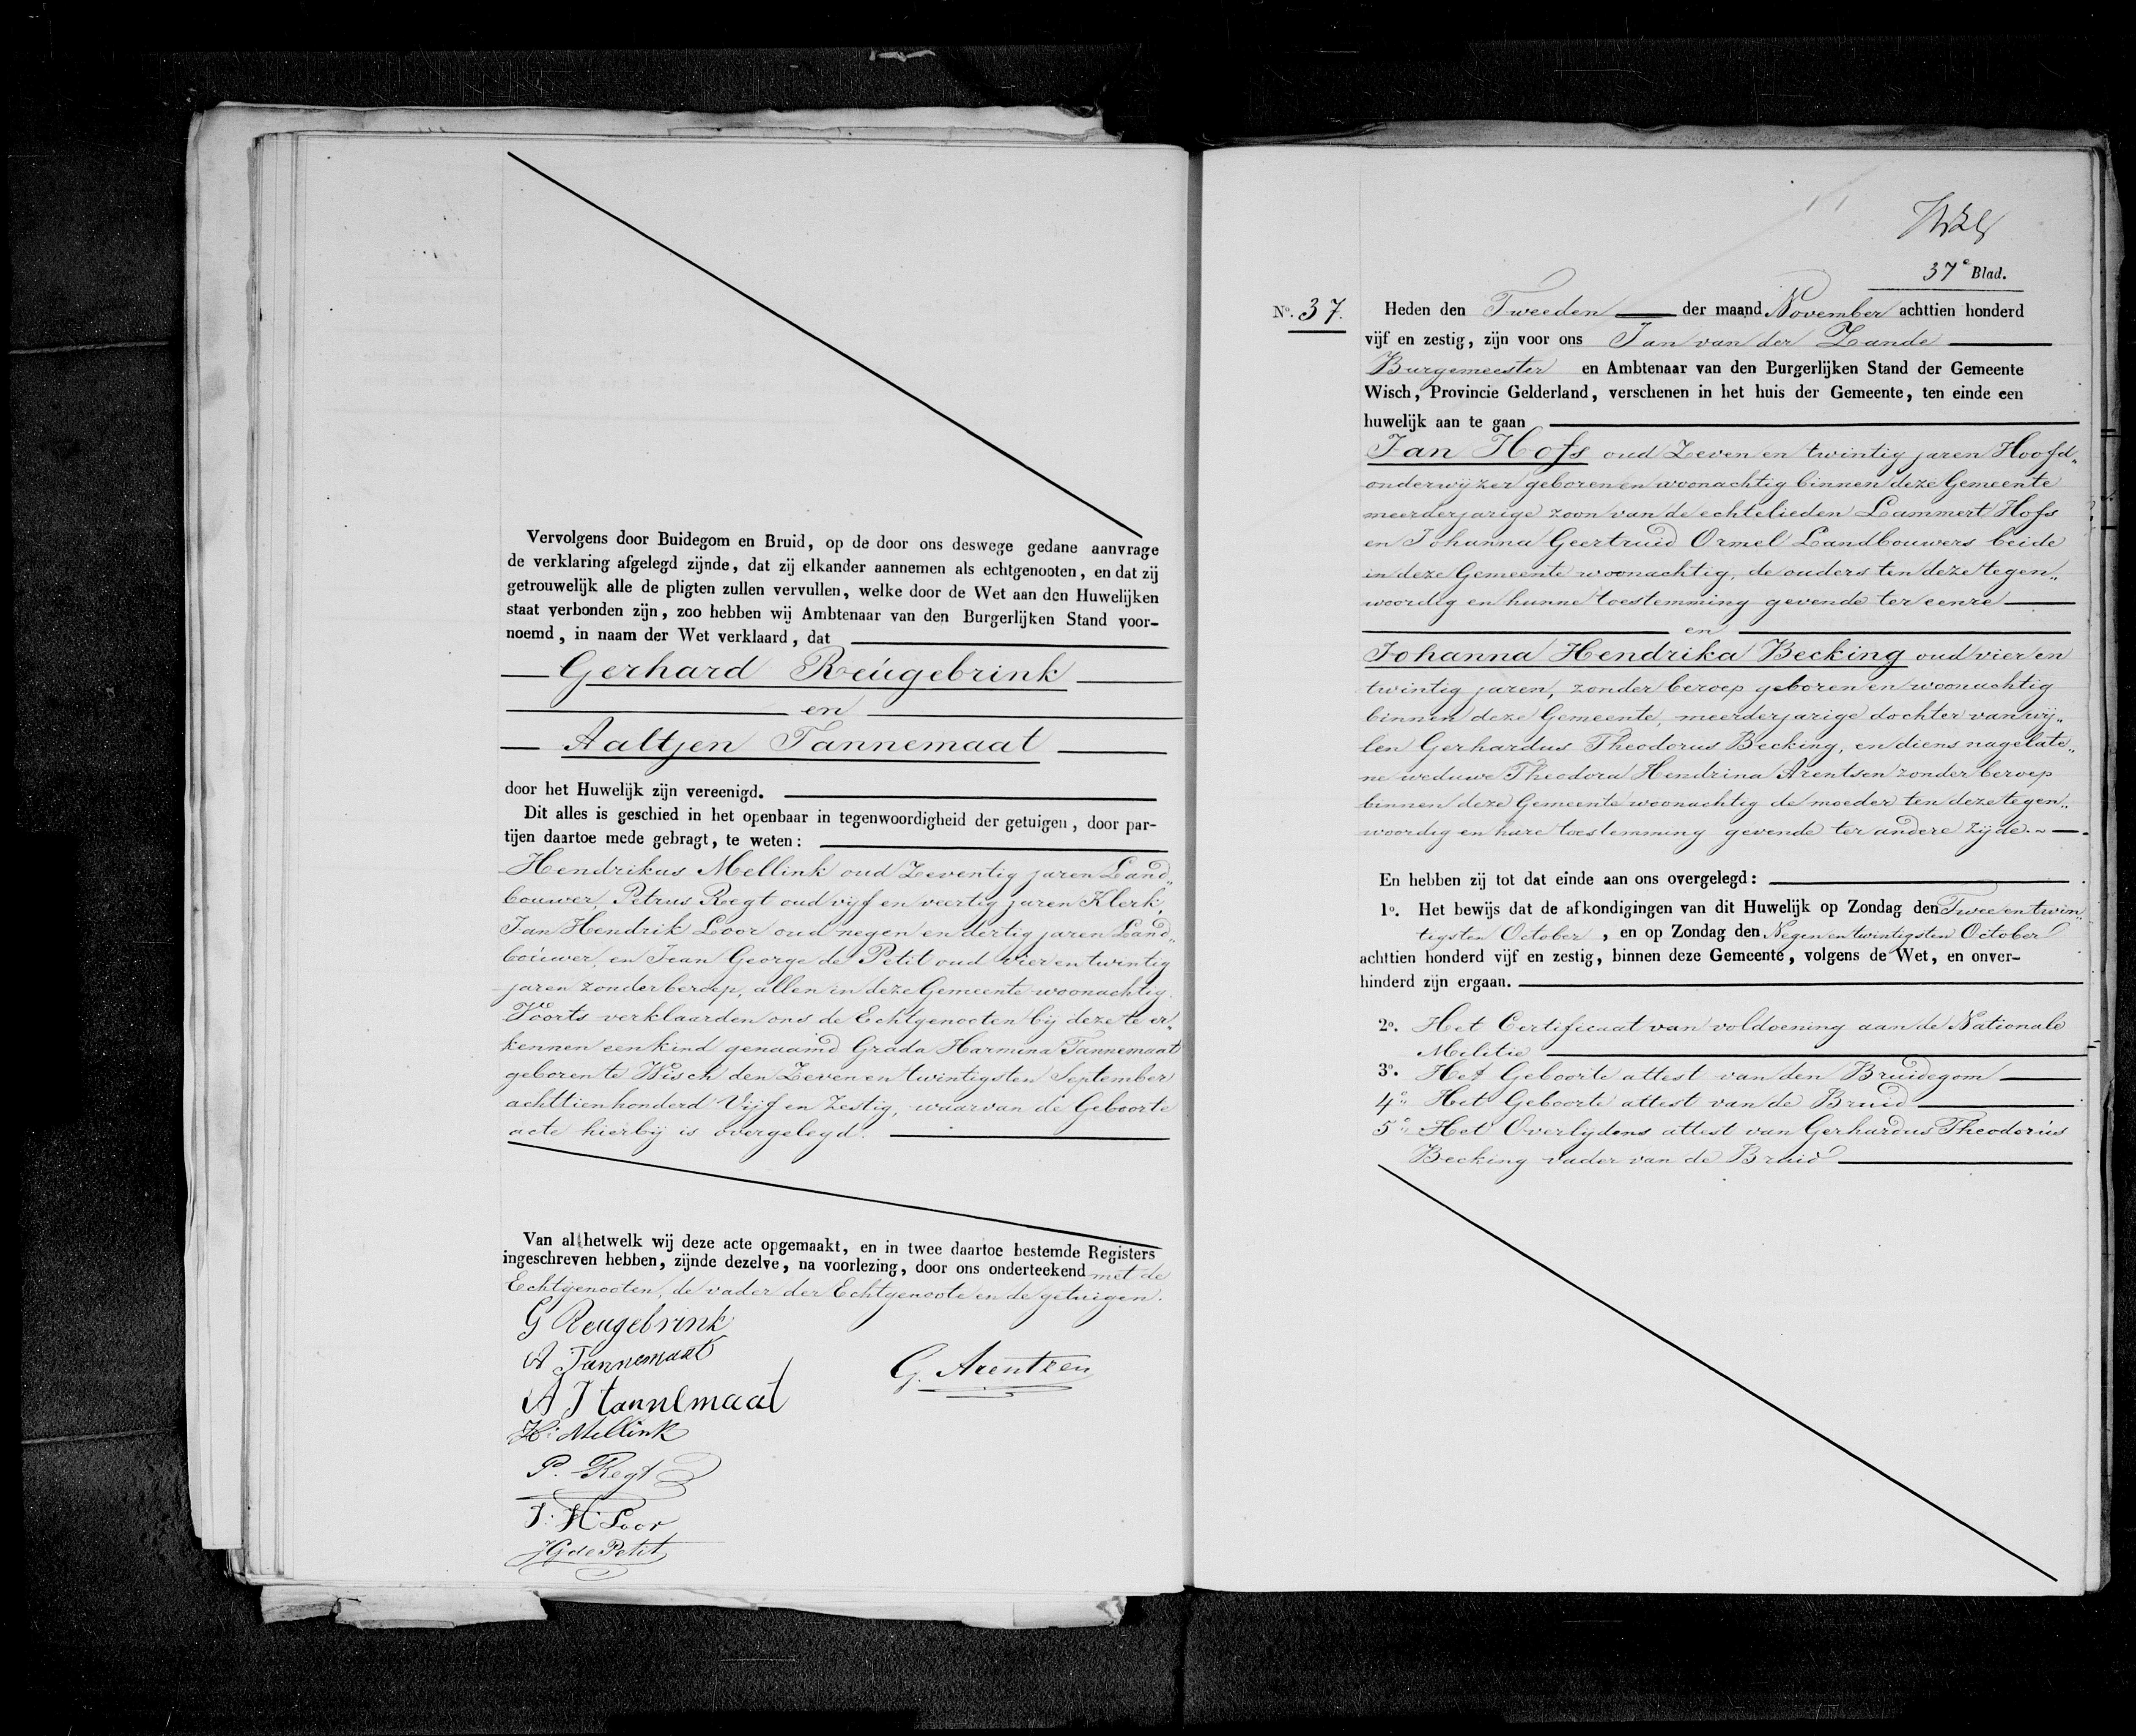 Vervolgens door Buidegom en Bruid, op de door ons deswege gedane aanvrage
de verklaring afgelegd zijnde, dat zij elkander aannemen als echtgenooten, en dat zij
getrouwelijk alle de pligten zullen vervullen, welke door de Wet aan den Huwelijken
staat verbonden zijn, zoo hebben wij Ambtenaar van den Burgerlijken Stand voor-
noemd, in naam der Wet verklaard, dat
Gerhard Reúgebrink
en
Aaltjen Tannemaat
door het Huwelijk zijn vereenigd.
Dit alles is geschied in het openbaar in tegenwoordigheid der getuigen, door par-
tijen daartoe mede gebragt, te weten:
Hendrikus Mellink oud Zeventig jaren Land„
bouwer, Petrus Regt oud vijf en veertig jaren Klerk,
Jan Hendrik Loor oud negen en dertig jaren Land„
bouwer, en Jean George de Petit oud vier en twintig
jaren zonder beroep, allen in deze Gemeente woonachtig.
Voorts verklaarden ons de Echtgenooten bij deze te er„
kennen een kind genaamd Grada Harmina Tannemaat
geboren te Wisch den Zeven en twintigsten September
achttienhonderd Vijf en Zestig, waarvan de Geboorte
acte hierbij is overgelegd.
Van al hetwelk wij deze acte opgemaakt, en in twee daartoe bestemde Registers
ingeschreven hebben, zijnde dezelve, na voorlezing, door ons onderteekend met de
Echtgenooten, de vader der Echtgenoote en de getuigen.
G Reugebrink
A Tannemaat
G. Arentzen
A J tannemaat
H: Mellink
P. Regt
J: H Loor
JG de Petit
37e Blad.
No. 37. Heden den Tweeden der maand November achttien honderd
vijf en zestig, zijn voor ons Jan van der Zande
Burgemeester en Ambtenaar van den Burgerlijken Stand der Gemeente
Wisch, Provincie Gelderland, verschenen in het huis der Gemeente, ten einde een
huwelijk aan te gaan
Jan Hofs oud Zeven en twintig jaren Hoofd„
onderwijzer geboren en woonachtig binnen deze Gemeente
meerderjarige zoon van de echtelieden Lammert Hofs
en Johanna Geertruid Ormel Landbouwers beide
in deze Gemeente woonachtig, de ouders ten deze tegen„
woordig en hunne toestemming gevende ter eenre
en
Johanna Hendrika Becking oud vier en
twintig jaren, zonder beroep geboren en woonachtig
binnen deze Gemeente, meerderjarige dochter van wij„
len Gerhardus Theodorus Becking, en diens nagelate„
ne weduwe Theodora Hendrina Arentsen zonder beroep
binnen deze Gemeente woonachtig de moeder ten deze tegen„
woordig en hare toestemming gevende ter andere zijde.
En hebben zij tot dat einde aan ons overgelegd:
1o. Het bewijs dat de afkondigingen van dit Huwelijk op Zondag den Twee en twin„
tigsten October, en op Zondag den Negen en twintigsten October
achttien honderd vijf en zestig, binnen deze Gemeente, volgens de Wet, en onver-
hinderd zijn ergaan.
2o. Het Certificaat van voldoening aan de Nationale
Militie
3o. Het Geboorte attest van den Bruidegom
4o. Het Geboorte attest van de Bruid
5o. Het Overlijdens attest van Gerhardus Theodorus
Becking vader van de Bruid